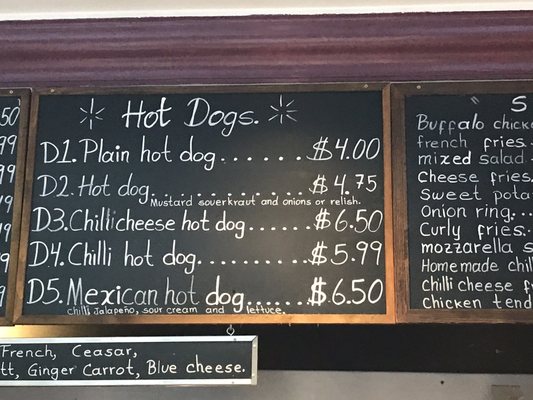 Hot Dogs.
D1. Plain hot dog...... $4.00
D2. Hot dog.............. $4.75
Mustard souerkraut and onions or relish.
D3. Chilli cheese hot dog....... $6.50
D4. Chilli hot dog............ $5.99
D5. Mexican hot dog...... $6.50
chilli Jalapeño, sour cream and lettuce.
50
99
99
S
Buffalo chick
french fries.
mixed salad
Cheese fries.
Sweet pota
Onion ring...
Curly fries..
mozzarella s
Homemade chil
chilli cheese f
chicken tend
French, Ceasar,
tt, Ginger Carrot, Blue cheese.